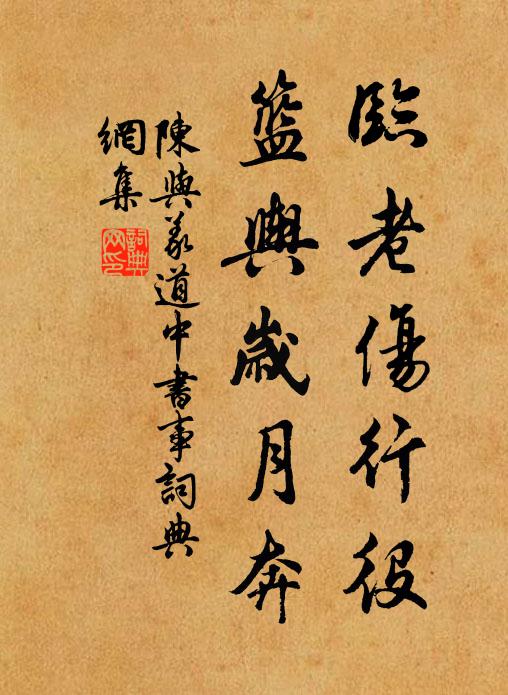 臨老傷行役
籃輿歲月奔
陳與義道中書事詞典
網集
詞典
网印